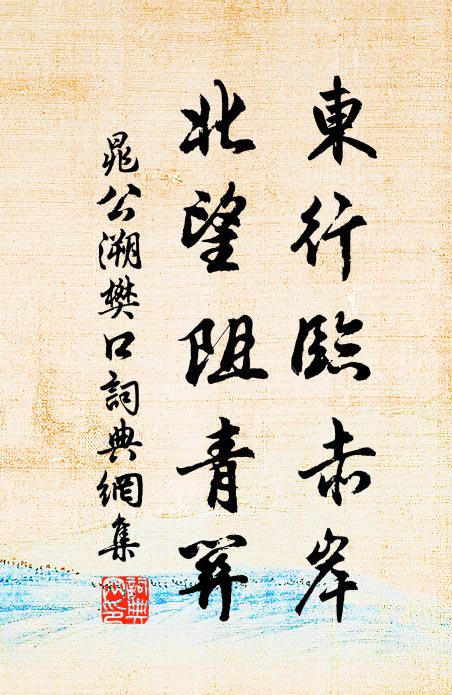 東行臨赤岸
北望阻青關
晁公溯樊口詞典網集